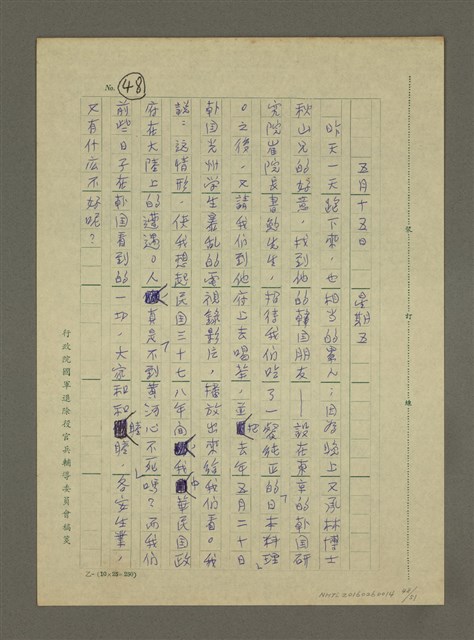 No. 48
五月十五日　星期五
昨天一天跑下來，也相当的累人；因為晚上又承林博士
秋山兄的好意，找到他的韓国朋友——設在東京的韩国研
究院崔院長書勉先生，招待我们吃了一餐純正的「日本料理」
。之後，又請我们到他府上去喝茶，並把去年五月二十日
韩国光州学生暴乱的電視錄影片，播放出來給我们看。我
說：這情形，使我想起民国三十七八年间我中華民国政
府在大陸上的遭遇。人真是「不到黃河心不死」嗎？而我们
前些日子在韩国看到的一切，大家和和睦睦，各安生業，
又有什広不好呢？
裝
訂
線
行政院國軍退除役官兵輔導委員會稿箋
乙-(10×25=250)
NMTL20160260014
48/51